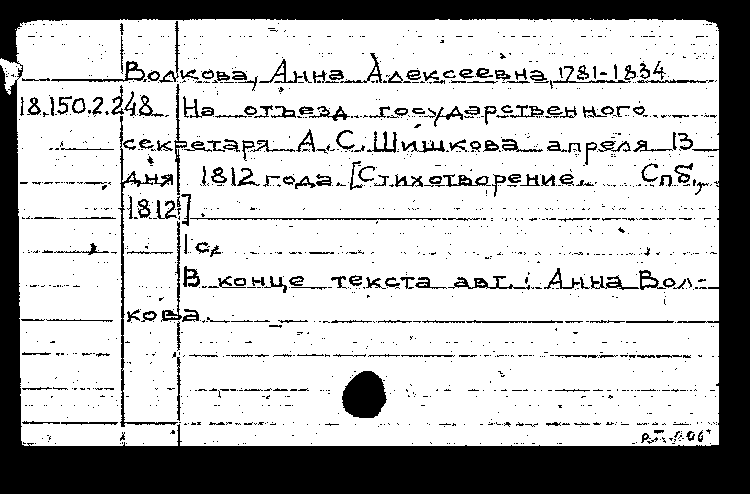 Волкова, Анна Алексеевна, 1781-1834
18.150.2.248 На отъезд государственного
секретаря А.С.Шишкова апреля 13
дня 1812 года. [Стихотворение. Спб.,
1812].
1 с.
В конце текста авт.: Анна Вол-
кова.